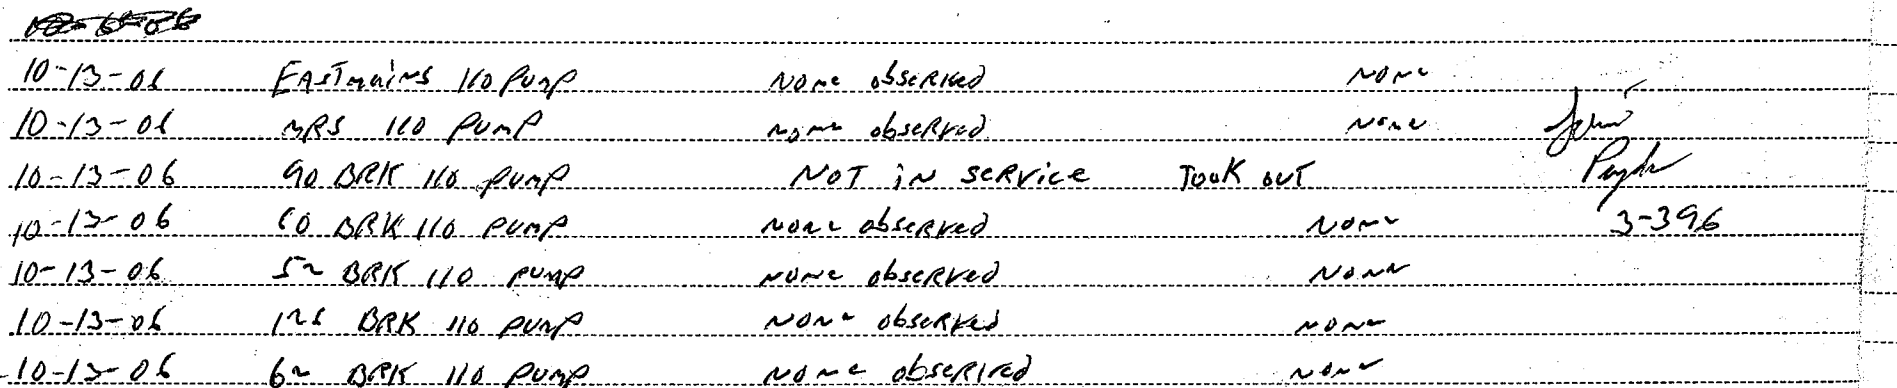 10-13-06 EASTmains 110 pump none observed none
10-13-06 MRS 110 pump none observed none
10-13-06 90 BRK 110 pump NOT iN service TOOK OUT
10-13-06 60 BRK 110 pump none observed none 3-396
10-13-06 BRK 110 pump none observed none
10-13-06 BRK 110 pump none observed none
10-13-06 BRK 110 pump none observed none